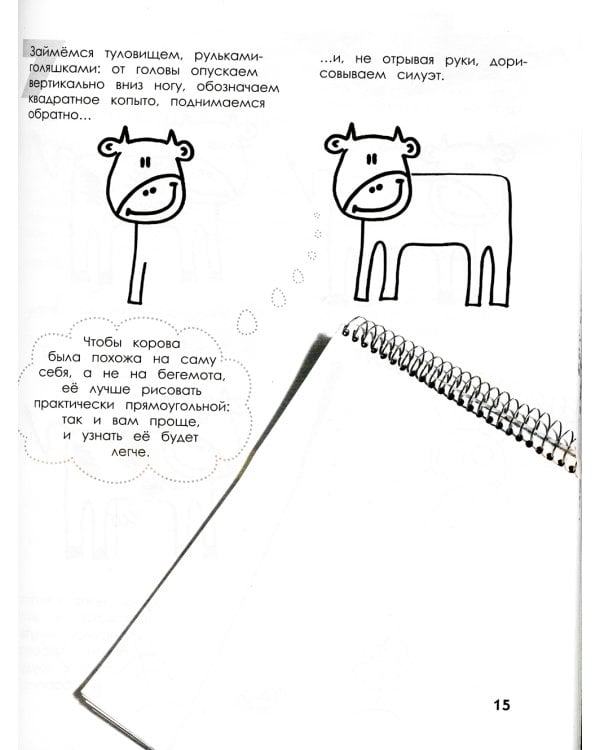 Займёмся туловищем, рульками-
голяшками: от головы опускаем
вертикально вниз ногу, обозначаем
квадратное копыто, поднимаемся
обратно...
...и, не отрывая руки, дори-
совываем силуэт.
Чтобы корова
была похожа на саму
себя, а не на бегемота,
её лучше рисовать
практически прямоугольной:
так и вам проще,
и узнать её будет
легче.
15